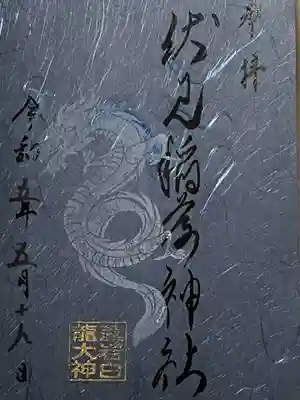 奉拝
伏見稲荷神社
令和五年五月十八日
岩白
龍大神